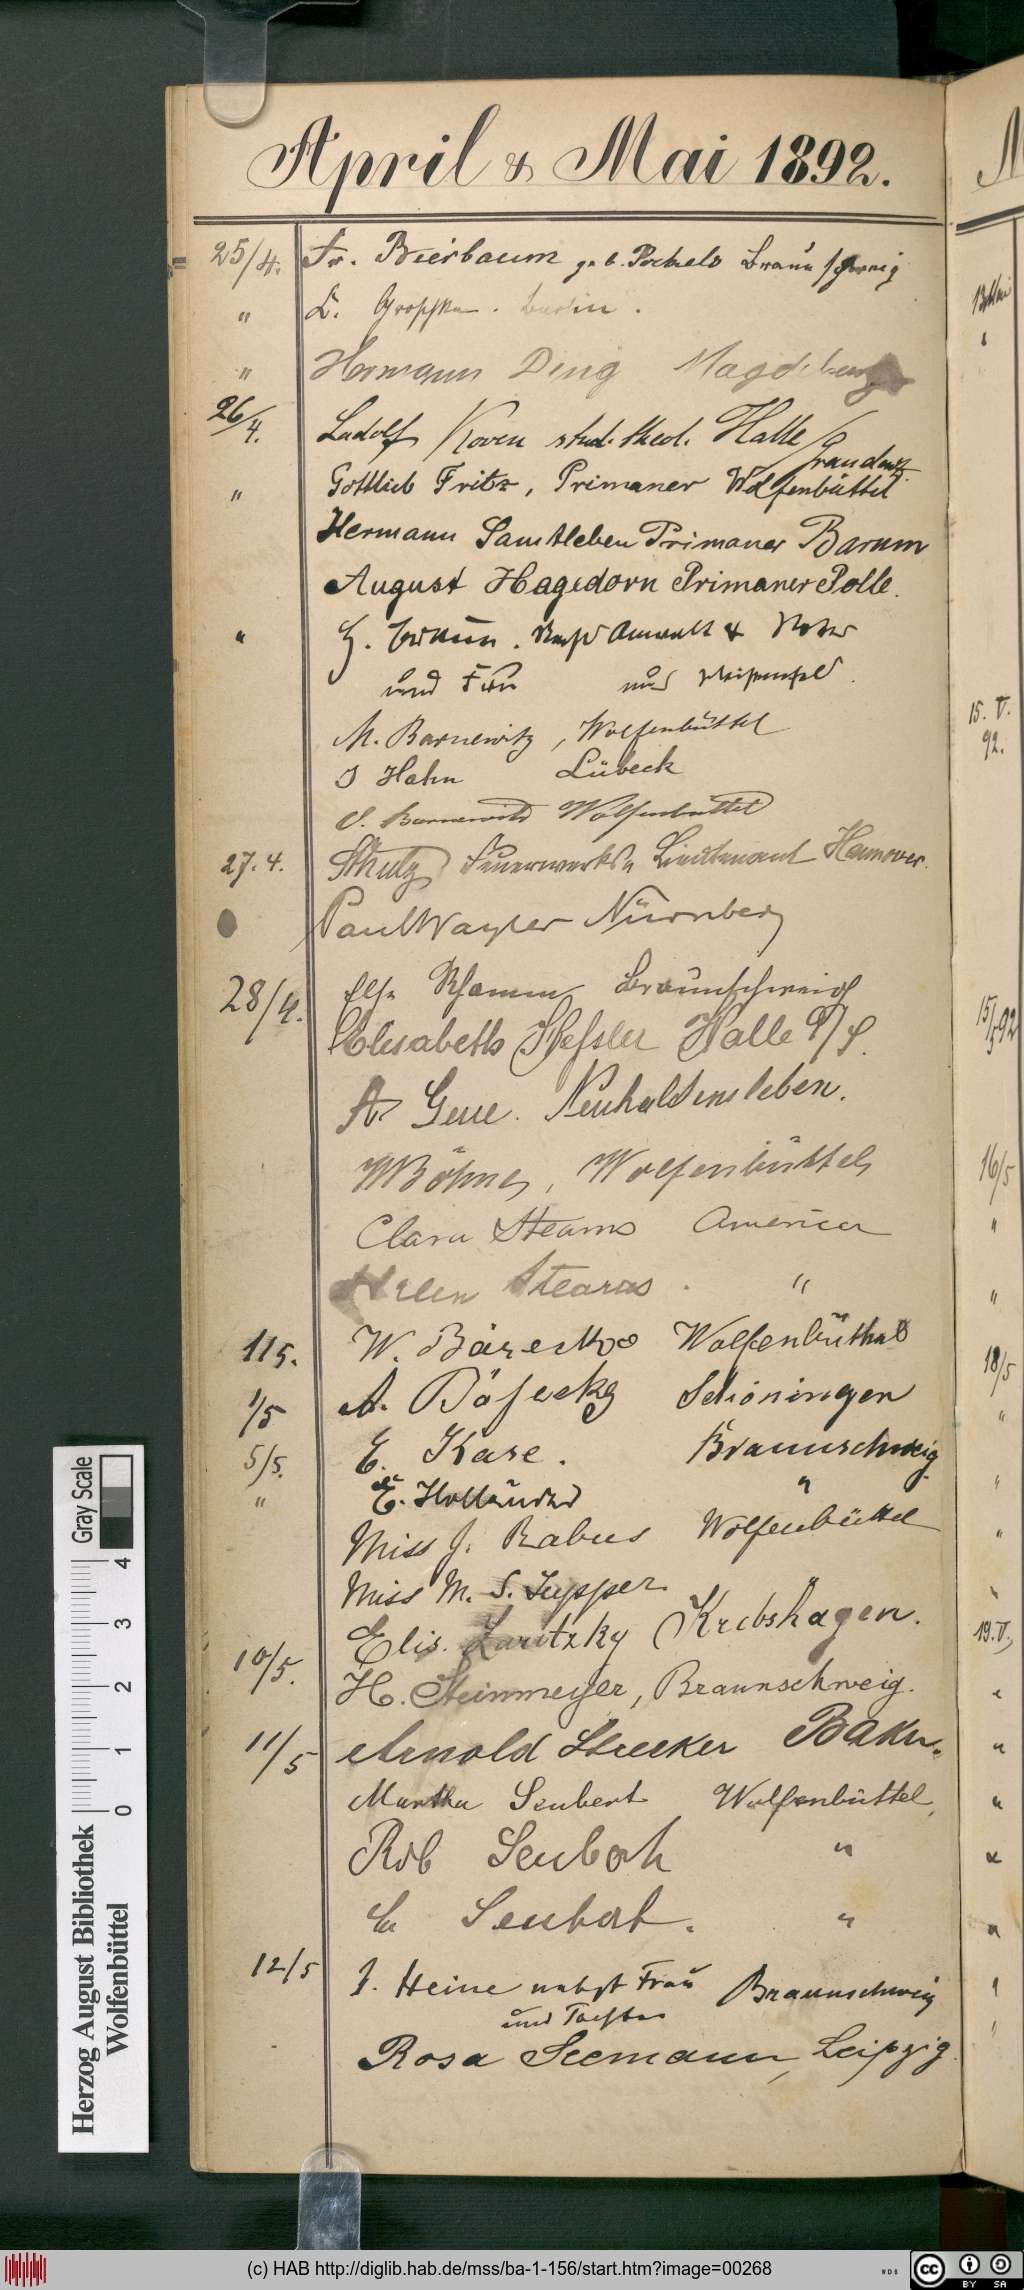 April & Mai 1892.
25/4. Fr. Bierbaum geb. Pockels Braunschweig
" L. Berlin.
" Hermann Deng Magdeburg
26/4. Ludolf Koven stud. theol. Halle/
Graudenz.
" Gottlieb Fritz, Primaner Wolfenbüttel
Hermann Samtleben Primaner Barum
August Hagedorn Primaner Polle.
" G. Braun. Rechtsanwalt & Notar
und Frau aus Weißenfels.
M. Barnewitz, Wolfenbüttel
J Hahn Lübeck
S. Barnewitz Wolfenbüttel
27. 4. Schulz Feuerwerks- Lieutenant Hannover.
Paul Wayser Nürnberg
28/4. Else Rhamm Braunschweig
Elisabeth Hessler Halle a/S.
A. Gene. Neuhaldensleben.
W Böhme, Wolfenbüttel
Clara Stearns America
Helen Stearns. "
1/5. W. Bärecke Wolfenbüttel
1/5 A. Bösecke Schöningen
5/5. E. Kase. Braunschweig
" E. Holländer "
Miss J. Rabus Wolfenbüttel
Miss M. S. Tupper.
Elis. Zaritzky Krebshagen.
10/5. H. Steinmeyer, Braunschweig.
11/5 Arnold Strecker Baku.
Martha Seubert Wolfenbüttel,
Rob Seubert "
Seubert. "
12/5 J. Heine nebst Frau Braunschweig
und Tochter
Rosa Seemann, Leipzig.
15. V.
92.
15/5 92
16/5
"
"
18/5
"
"
"
19. V.
"
"
"
"
Gray Scale
4
3
2
1
0
Herzog August Bibliothek
Wolfenbüttel
(c) HAB http://diglib.hab.de/mss/ba-1-156/start.htm?image=00268
WDB
cc BY SA